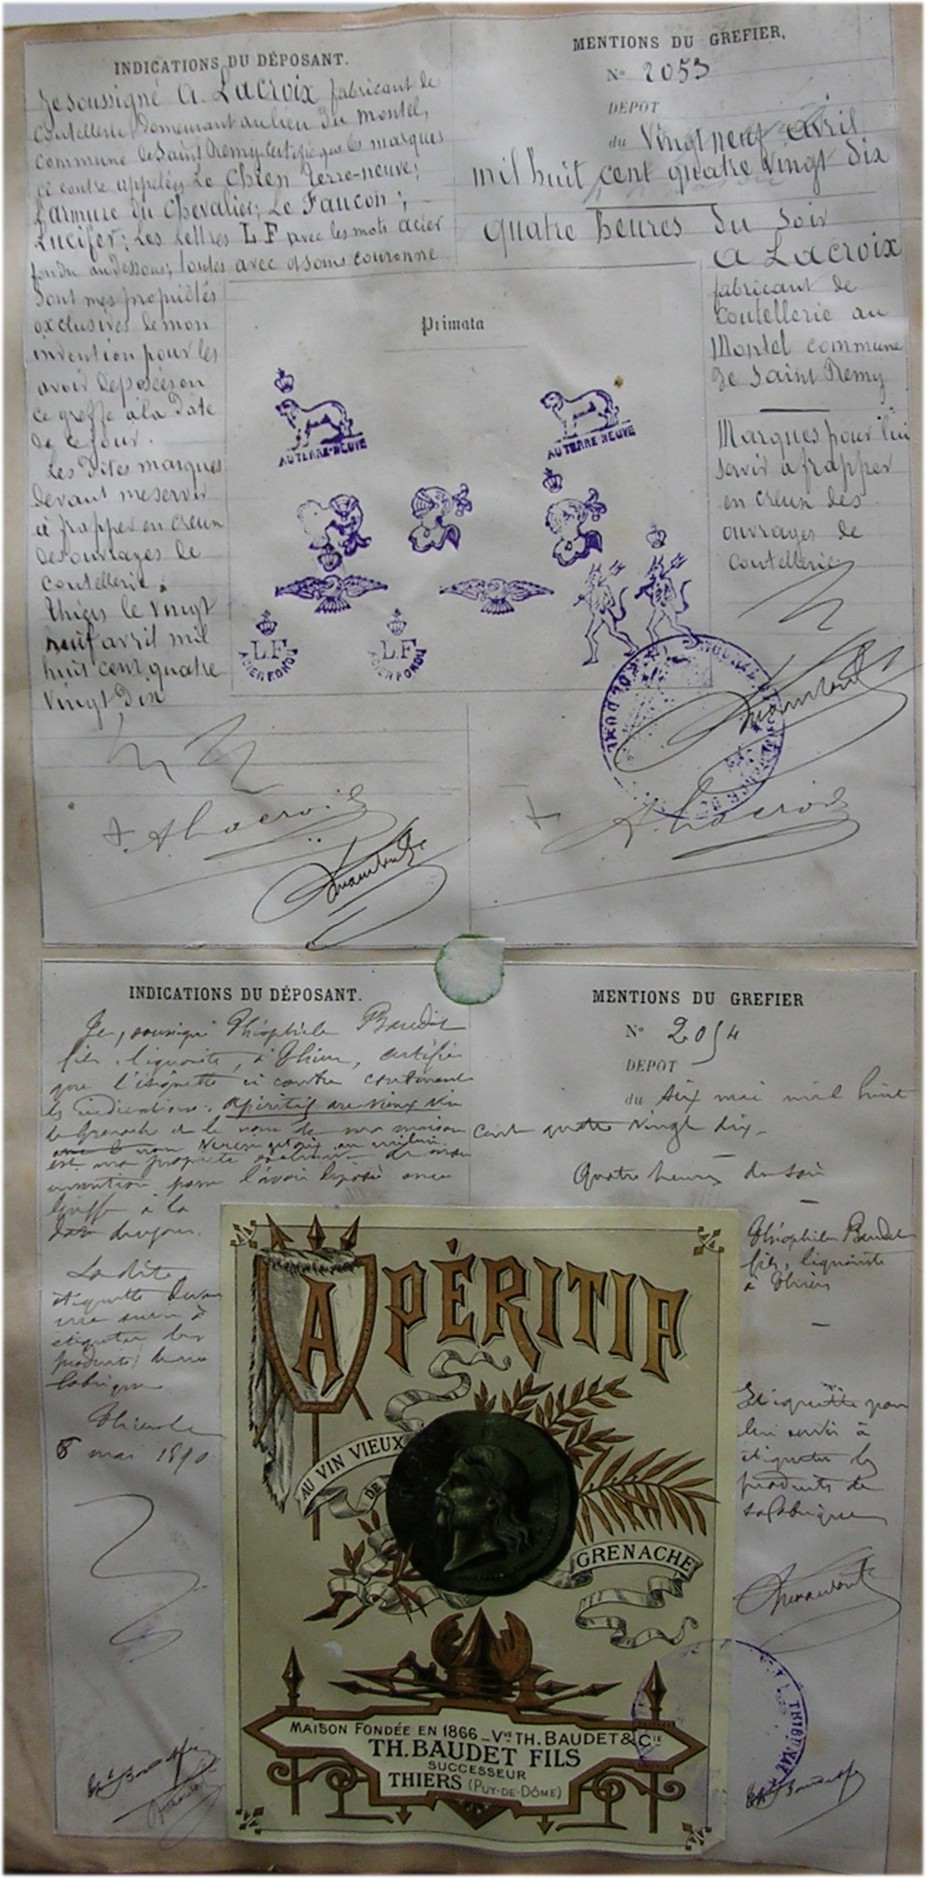 INDICATIONS DU DÉPOSANT.
Je soussigné A. Lacroix fabricant de
Coutellerie, Demeurant au lieu Du Montel,
commune de Saint Remy certifie que les marques
ci contre appelées Le Chien Terre-neuve;
L'armure Du Chevalier; Le Faucon;
Lucifer; Les Lettres LF avec les mots acier
fondu au Dessous; toutes avec ou sans couronne
Sont mes propriétés
exclusives de mon
invention pour les
avoir deposées en
ce greffe à la Date
de ce jour.
Les Dites marques
devant me servir
à frapper en creux
des ouvrages de
coutellerie.
Thiers le vingt
neuf avril mil
huit cent quatre
vingt Dix
A Lacroix
MENTIONS DU GREFIER,
N° 2053
DEPOT
du Vingt neuf avril
mil huit cent quatre vingt Dix
quatre heures Du Soir
A Lacroix
fabricant de
Coutellerie au
Montel commune
De Saint Remy
Marques pour lui
servir a frapper
en creux des
ouvrages de
coutellerie
Primata
AU TERRE-NEUVE
AU TERRE-NEUVE
LF
ACIER FONDU
LF
ACIER FONDU
A Lacroix
INDICATIONS DU DÉPOSANT.
Je, soussigné Théophile Baudet
fils, liquoriste, à Thiers, certifie
que l'étiquette ci contre contenant
les indications: Apéritif au vieux vin
de Grenache et le nom de ma maison
est ma propriété exclusive de mon
invention pour l'avoir déposé au
Greffe à la
date du jour.
La dite
étiquette devant
me servir à
étiqueter des
produits de ma
fabrique
Thiers le
6 mai 1890
Th. Baudet fils
MENTIONS DU GREFIER
N° 2054
DEPOT
du Six mai mil huit
cent quatre vingt dix
Quatre heures du soir
Théophile Baudet
fils, liquoriste
à Thiers
Etiquette pour
lui servir à
étiqueter les
produits de
sa fabrique
APÉRITIF
AU VIN VIEUX
DE
GRENACHE
MAISON FONDÉE EN 1866 _ Vve TH. BAUDET & Cie
TH. BAUDET FILS
SUCCESSEUR
THIERS (PUY-DE-DÔME)
TRIBUNAL
Th. Baudet fils